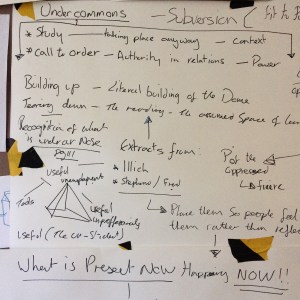 Undercommons — Subversion (
* Study — taking place anyway — Context
* Call to order - Authority in relations - Power
Building up - Literal building of the Dome
Tearing down - The reworking - The assumed Space of
Recognition of what
is under our Nose
Useful
unemployment
Tools
Useful
Useful
Extracts from:
* Illich
* Stephano / Fred
of the
oppressed
figure
Place them so people feel
them rather than
What is Present NOW Happening NOW!!